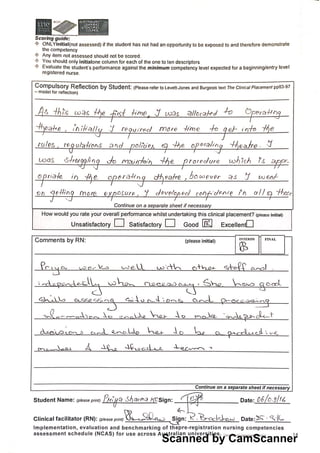 Scoring guide:
ONLY initial (not assessed) if the student has not had an opportunity to be exposed to and therefore demonstrate
the competency
Any item not assessed should not be scored
You should only initial one column for each of the one to ten descriptors
Evaluate the student's performance against the minimum competency level expected for a beginning/entry level
registered nurse.
Compulsory Reflection by Student: (Please refer to Levett-Jones and Burgeois text The Clinical Placement pp93-97
– model for reflection)
As this was the first time, I was allocated to Operating
theatre, initially I required more time to get into the
rules, regulations and policies of the operating theatre. I
was struggling to maintain the procedure which is appr-
opriate in the operating theatre, however as I went
on getting more exposure, I developed confidence in all of these
Continue on a separate sheet if necessary
How would you rate your overall performance whilst undertaking this clinical placement? (please initial)
Unsatisfactory Satisfactory Good Excellent
Comments by RN: (please initial) INTERIM FINAL
Priya works well with other staff and
independently when necessary. She has good
skills assessing situations and processing
information to enable her to make independent
decisions and enable her to be a productive
member of the theatre team.
Continue on a separate sheet if necessary
Student Name: (please print) Priya Sharma Sign: Date: 06/05/16
Clinical facilitator (RN): (please print) Sign: R. Bradshaw Date:
Implementation, evaluation and benchmarking of the pre-registration nursing competencies
assessment schedule (NCAS) for use across Australian universities.
Scanned by CamScanner